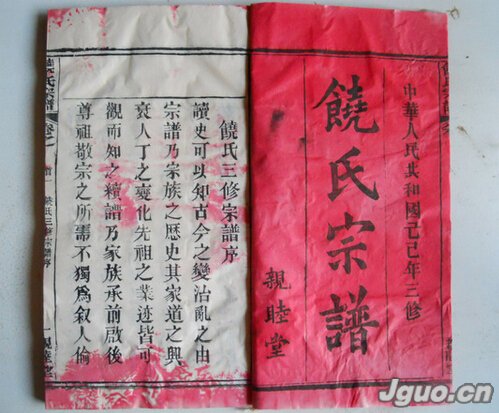 中華人民共和國己巳年三修
饒氏宗譜
親睦堂
饒氏三修宗譜序
讀史可以知古今之變治亂之由
宗譜乃宗族之歷史其家道之興
衰人丁之變化先祖之業迹皆可
觀而知之續譜乃家族承前啟後
尊祖敬宗之所需不獨為叙人倫
饒氏宗譜
饒氏三修宗譜序
親睦堂
Jguo.cn